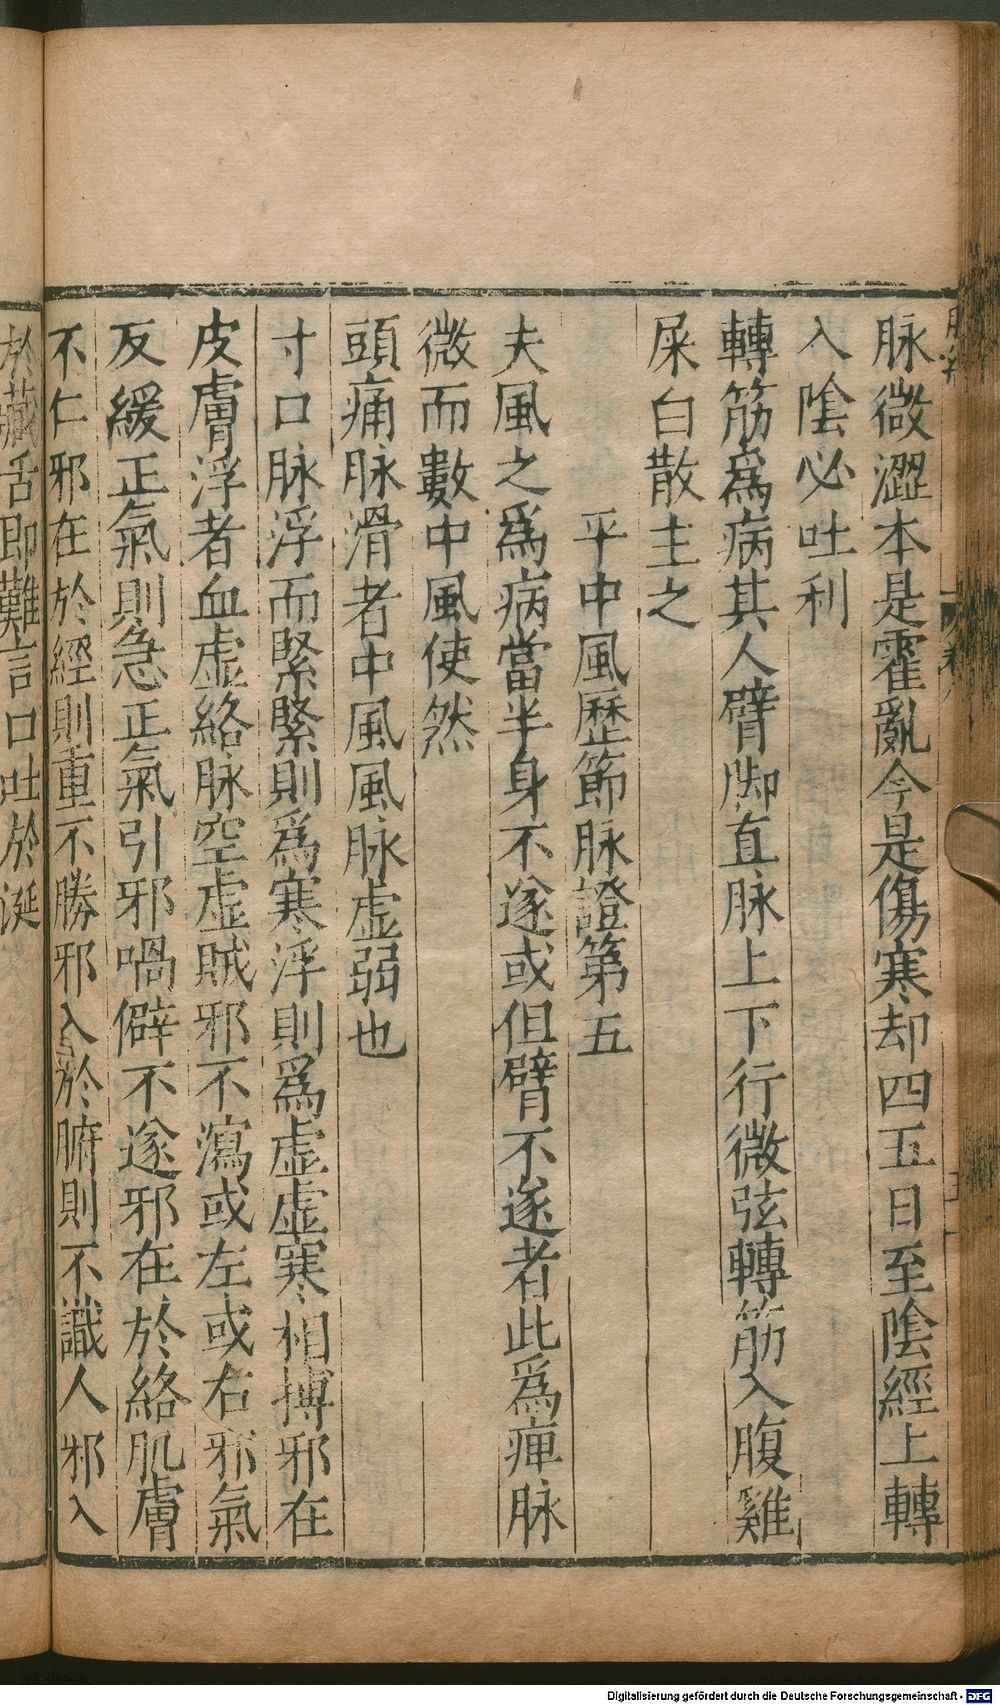 脉微澀本是霍亂今是傷寒却四五日至陰經上轉
入陰必吐利
轉筋爲病其人臂脚直脉上下行微弦轉筋入腹雞
屎白散主之
平中風歷節脉證第五
夫風之爲病當半身不遂或但臂不遂者此爲痺脉
微而數中風使然
頭痛脉滑者中風風脉虛弱也
寸口脉浮而緊緊則爲寒浮則爲虛虛寒相搏邪在
皮膚浮者血虛絡脉空虛賊邪不瀉或左或右邪氣
反緩正氣則急正氣引邪喎僻不遂邪在於絡肌膚
不仁邪在於經則重不勝邪入於腑則不識人邪入
於藏舌即難言口吐於涎
Digitalisierung gefördert durch die Deutsche Forschungsgemeinschaft - DFG